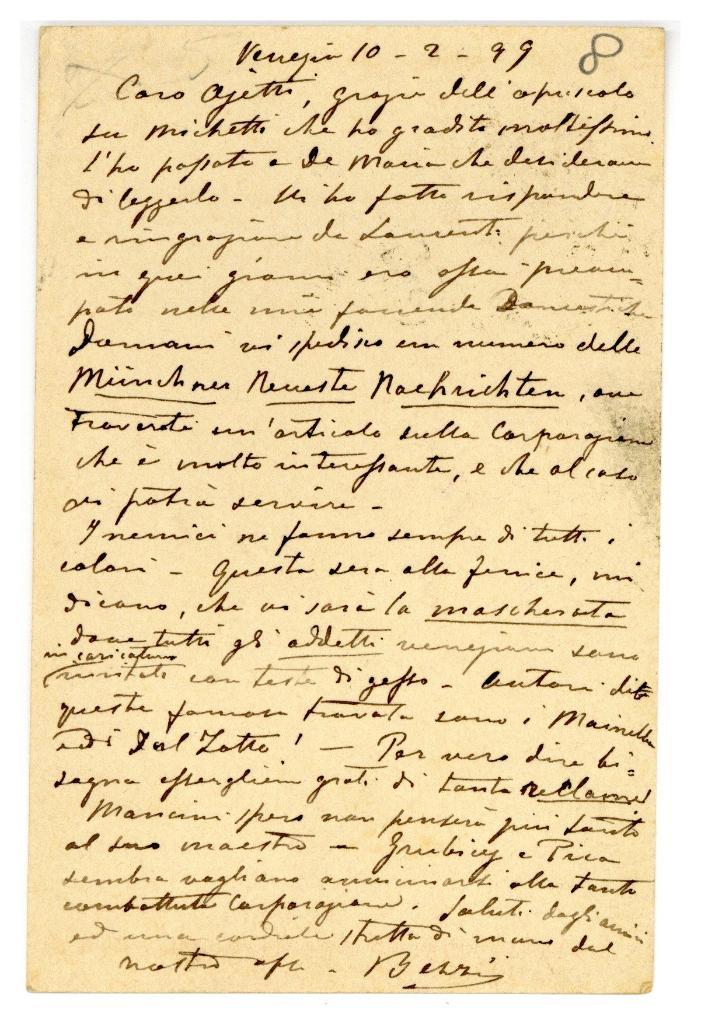 Venezia 10 - 2 - 99
8
Caro Ojetti, grazie dell'opuscolo
su Michetti che ho gradito moltissimo.
L'ho passato a De Maria che desiderava
di leggerlo - Vi ho fatto rispondere
e ringraziare da Laurenti perchè
in quei giorni ero assai preoccu=
pato nelle mie faccende Domestiche
Domani vi spedisco un numero delle
Münchner Neueste Nachrichten, ove
troverete un'articolo sulla Corporazione
che è molto interessante, e che al caso
vi potrà servire -
I nemici ne fanno sempre di tutti i
colori - Questa sera alla fenice, mi
dicono, che vi sarà la mascherata
dove tutti gli addetti veneziani sono
in caricatura
con teste di gesso - Autori di
questa famosa trovata sono i Mainella
ed i Dal Zotto! - Per vero dire bi=
sogna essergliene grati di tanta reclame!
Mancini spero non penserà più tanto
al suo maestro - Grubicy e Pica
sembra vogliano avvicinarsi alla tanto
combattuta Corporazione. Saluti dagli amici
ed una cordiale stretta di mano dal
vostro aff. - Bezzi